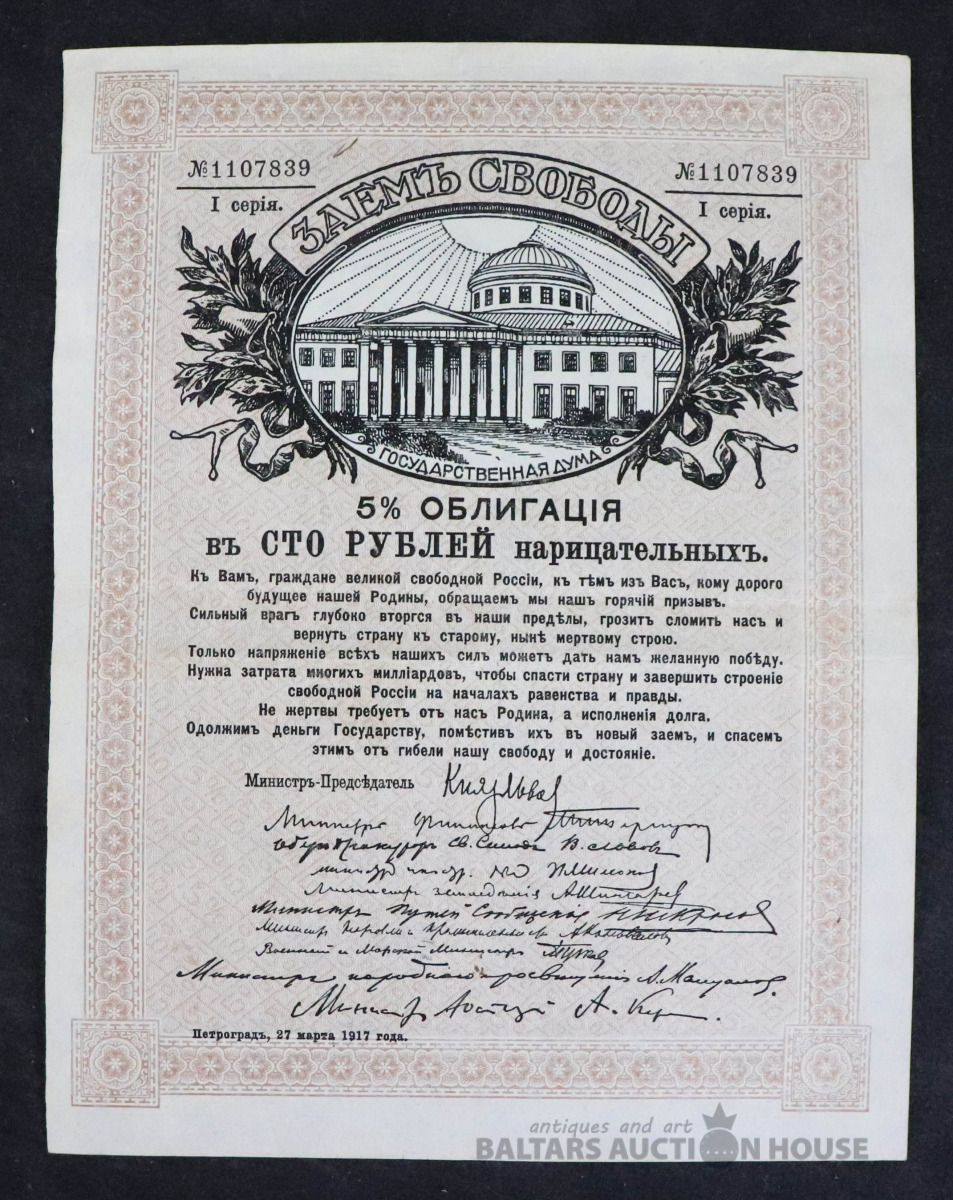 №1107839
I серія.
ЗАЕМЪ СВОБОДЫ
№1107839
I серія.
ГОСУДАРСТВЕННАЯ ДУМА
5% ОБЛИГАЦІЯ
въ СТО РУБЛЕЙ нарицательныхъ.
Къ Вамъ, граждане великой свободной Россіи, къ тѣмъ изъ Васъ, кому дорого
будущее нашей Родины, обращаемъ мы нашъ горячій призывъ.
Сильный врагъ глубоко вторгся въ наши предѣлы, грозитъ сломить насъ и
вернуть страну къ старому, нынѣ мертвому строю.
Только напряженіе всѣхъ нашихъ силъ можетъ дать намъ желанную побѣду.
Нужна затрата многихъ милліардовъ, чтобы спасти страну и завершить строеніе
свободной Россіи на началахъ равенства и правды.
Не жертвы требуетъ отъ насъ Родина, а исполненія долга.
Одолжимъ деньги Государству, помѣстивъ ихъ въ новый заемъ, и спасемъ
этимъ отъ гибели нашу свободу и достояніе.
Министръ-Предсѣдатель Кн Львов
Министръ финансовъ
Оберъ Прокуроръ Св. Синода В. Львовъ
Министръ земледѣлія А Шингарев
Министръ Путей Сообщенія Н Некрасов
Министр торговли и промышленности А Коновалов
Военный и Морской Министръ Гучков
Министръ народнаго просвѣщенія А. Мануйлов.
Министр Юстиціи А. Кер
Петроградъ, 27 марта 1917 года.
antiques and art
BALTARS AUCTION HOUSE